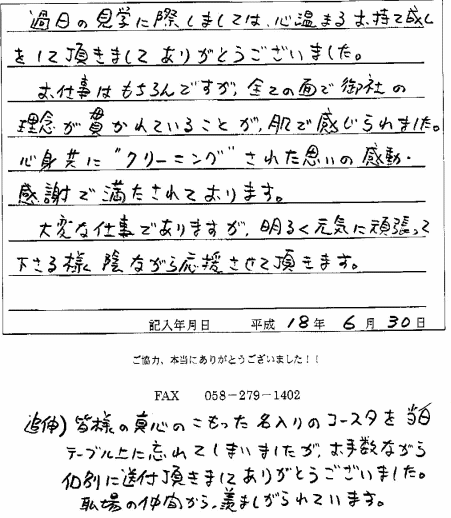 過日の見学に際しましては、心温まるお持て成し
をして頂きましてありがとうございました。
お仕事はもちろんですが、全ての面で御社の
理念が貫かれていることが、肌で感じられました。
心身共に"クリーニング"された思いの感動・
感謝で満たされております。
大変な仕事でありますが、明るく元気に頑張って
下さる様、陰ながら応援させて頂きます。
記入年月日 平成 18年 6月 30日
ご協力、本当にありがとうございました!!
FAX 058-279-1402
追伸) 皆様の真心のこもった名入りのコースタを当日
テーブル上に忘れてしまいましたが、お手数ながら
個別に送付頂きましてありがとうございました。
職場の仲間から、羨ましがられています。